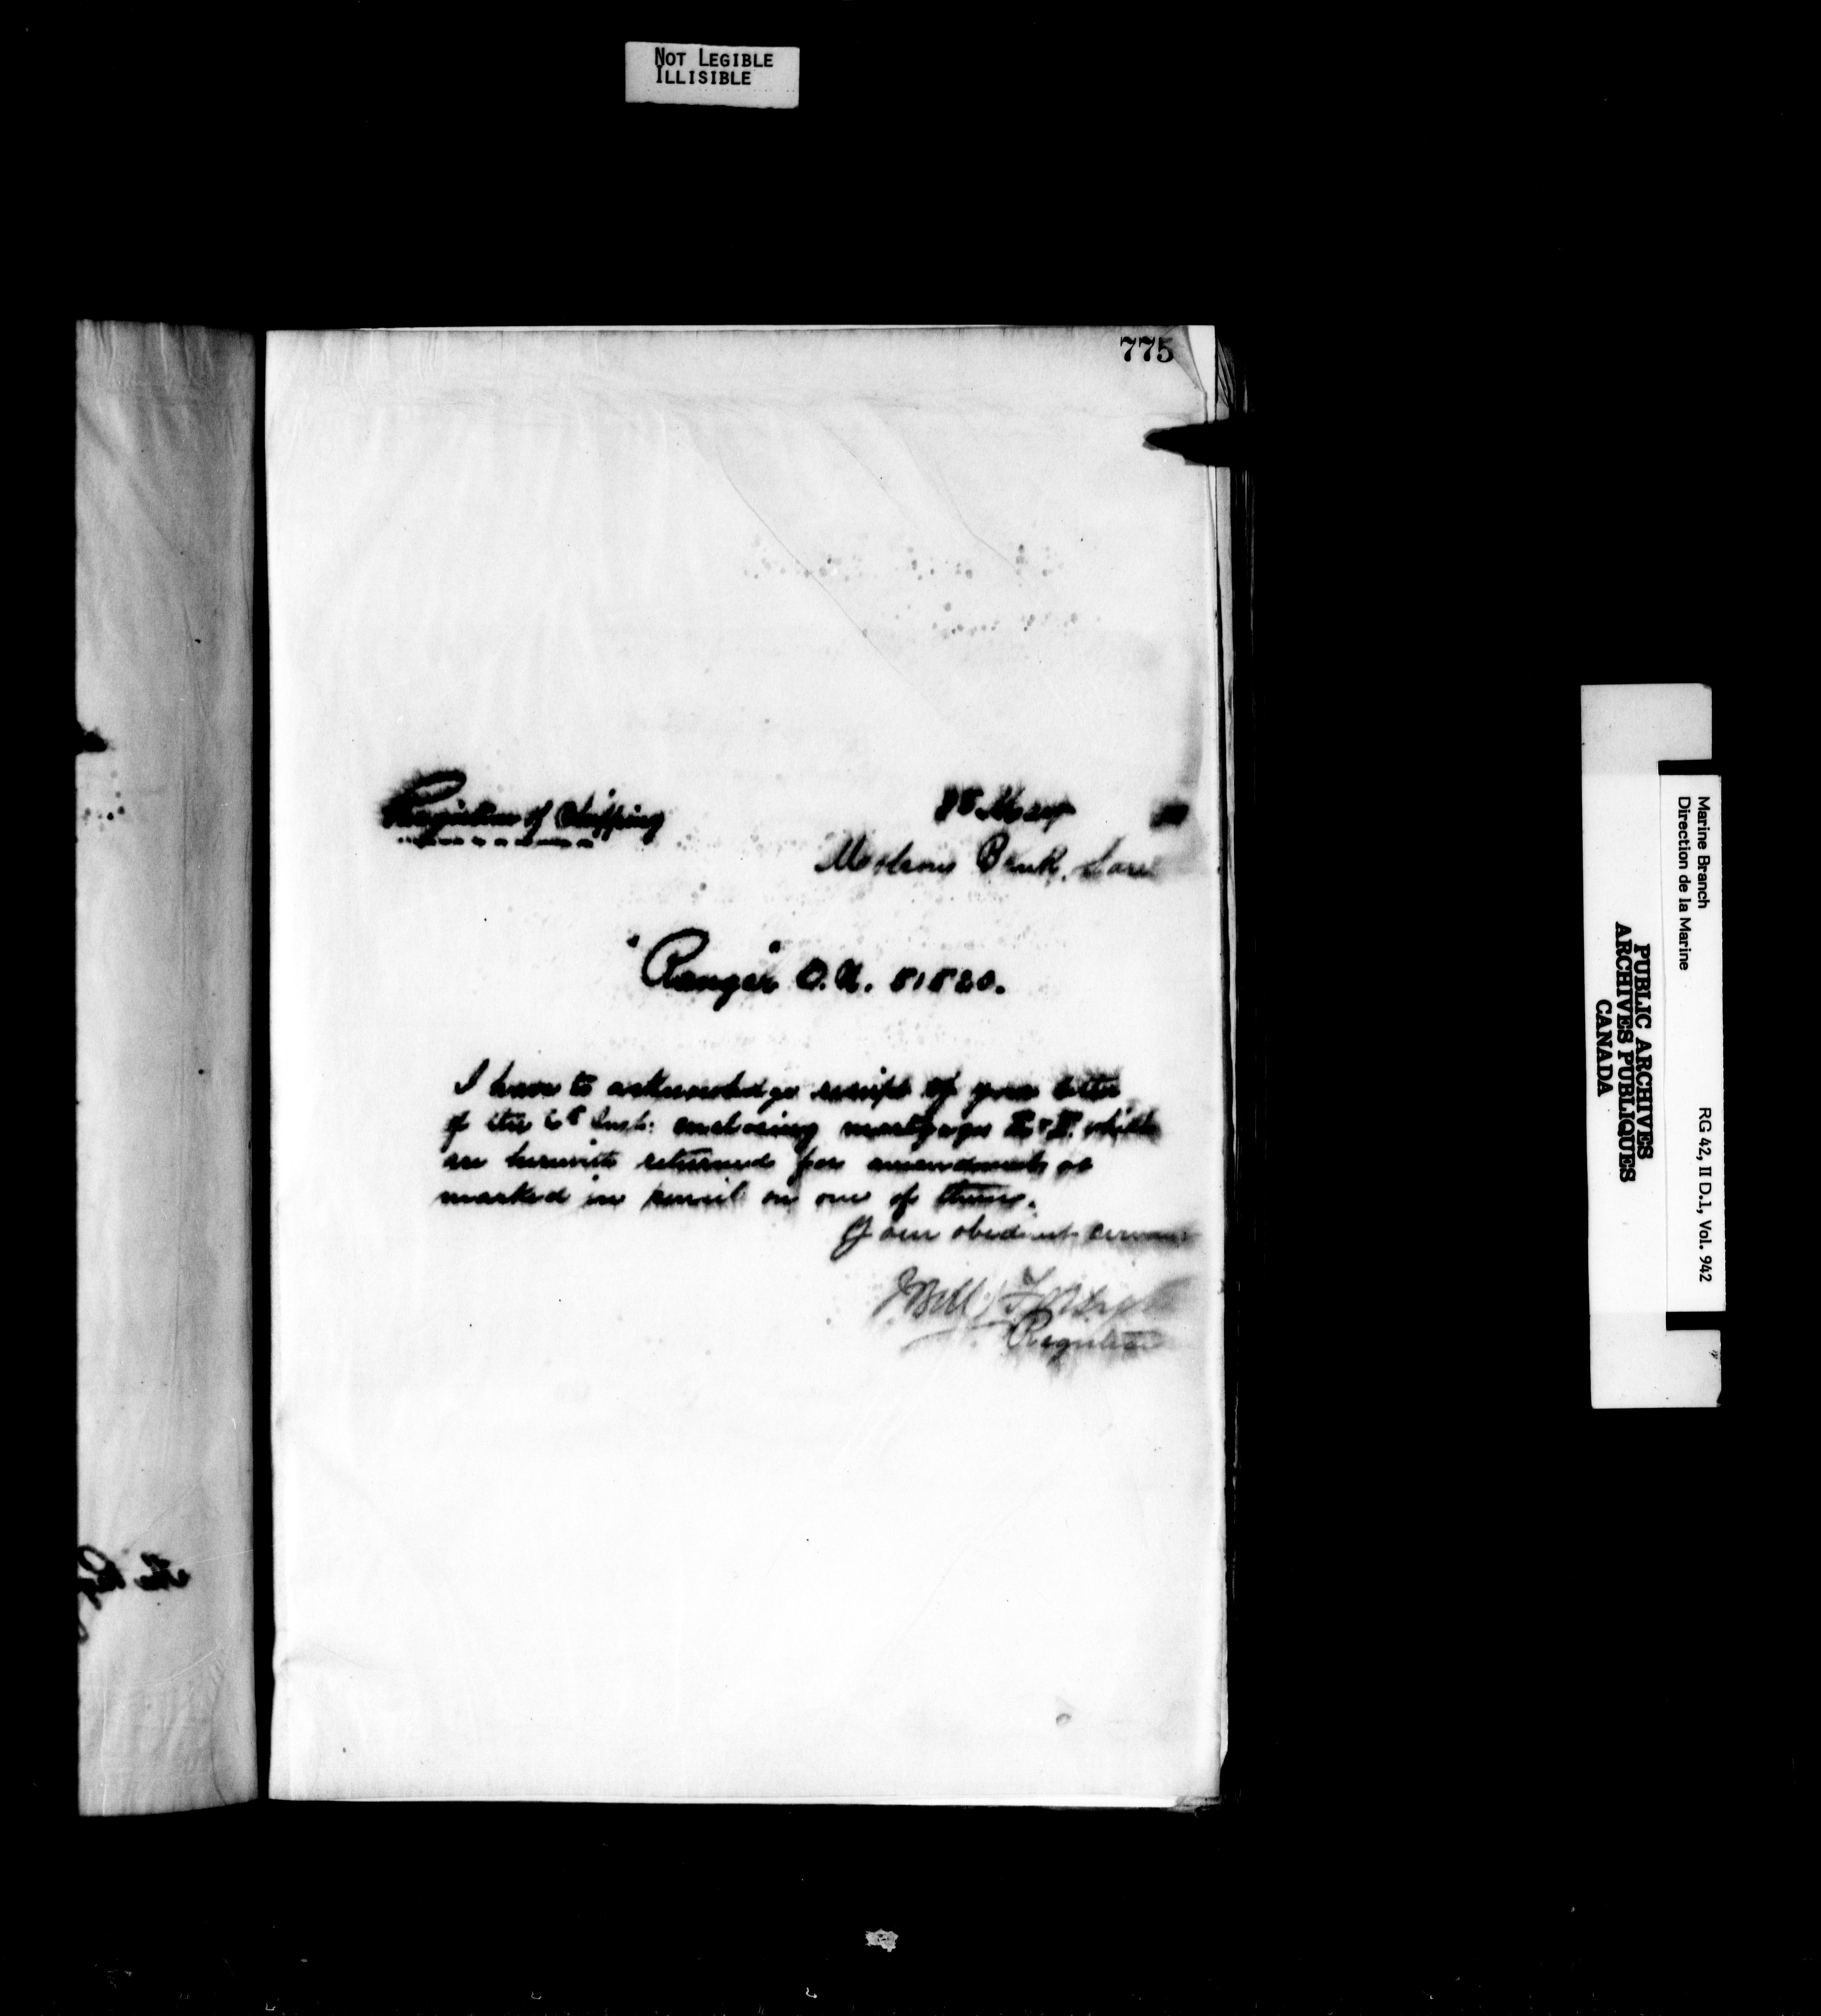 NOT LEGIBLE
ILLISIBLE
775
of Shipping
8th May
Molsons Bank, Sorel
"Ranger" O.N.
I have to acknowledge receipt of your letter
of the 6th Inst: enclosing mortgages which
are herewith returned for amendment as
marked in pencil on one of them.
Your obedient servant
Registrar
The
Marine Branch
Direction de la Marine
RG 42, II D.1, Vol. 942
PUBLIC ARCHIVES
ARCHIVES PUBLIQUES
CANADA